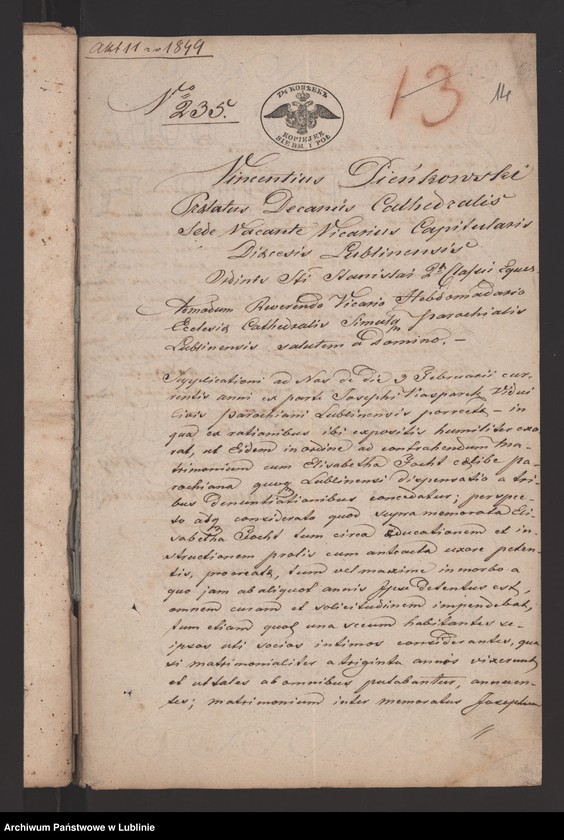 Akt 11 r. 1849
No 235.
7½ КОПѢЕКЪ
KOPIEJEK
SIEDM I PÓŁ
13
14
Vincentius Pieńkowski
Prælatus Decanus Cathedralis
Sede Vacante Vicarius Capitularis
Diæcesis Lublinensis
Ordinis Sti Stanislai 2æ Classis Eques
Admodum Reverendo Vicario Hebdomadario
Ecclesiæ Cathedralis Simulq parochialis
Lublinensis salutem a Domino. —
Supplicationi ad Nos de die 3 Februarii cur-
rentis anni ex parte Josephi Vidui
Civis parochiani Lublinensis porrectæ — in
qua ex rationibus ibi expositis humiliter exo-
rat, ut Eidem in ordine ad contrahendum ma-
trimonium cum Elisabetha Pocht cælibe pa-
rochiana quoq Lublinensi dispensatio a tri-
bus denuntiationibus concedatur; perspec-
to atq considerato quod supra memorata Eli-
sabetha Pocht tum circa Educationem et in-
structionem prolis cum anteacta uxore peten-
tis, procreatæ, tum vel maxime in morbo a
quo jam ab aliquot annis Ipse detentus est,
omnem curam et solicitudinem impendebat,
tum etiam quod una secum habitantes se-
ipsos uti socios intimos considerantes, qua-
si matrimonialiter a triginta annis vixerunt
et ut tales ab omnibus putabantur, annuen-
tes; matrimonium inter memoratus Josephum
Archiwum Państwowe w Lublinie